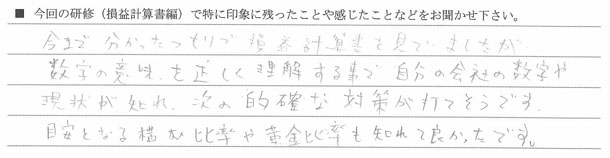 ■ 今回の研修（損益計算書編）で特に印象に残ったことや感じたことなどをお聞かせ下さい。
今まで分かったつもりで損益計算書を見ていましたが
数字の意味を正しく理解する事で自分の会社の数字や
現状が知れ、次の的確な対策が打てそうです。
目安となる構成比率や黄金比率も知れて良かったです。